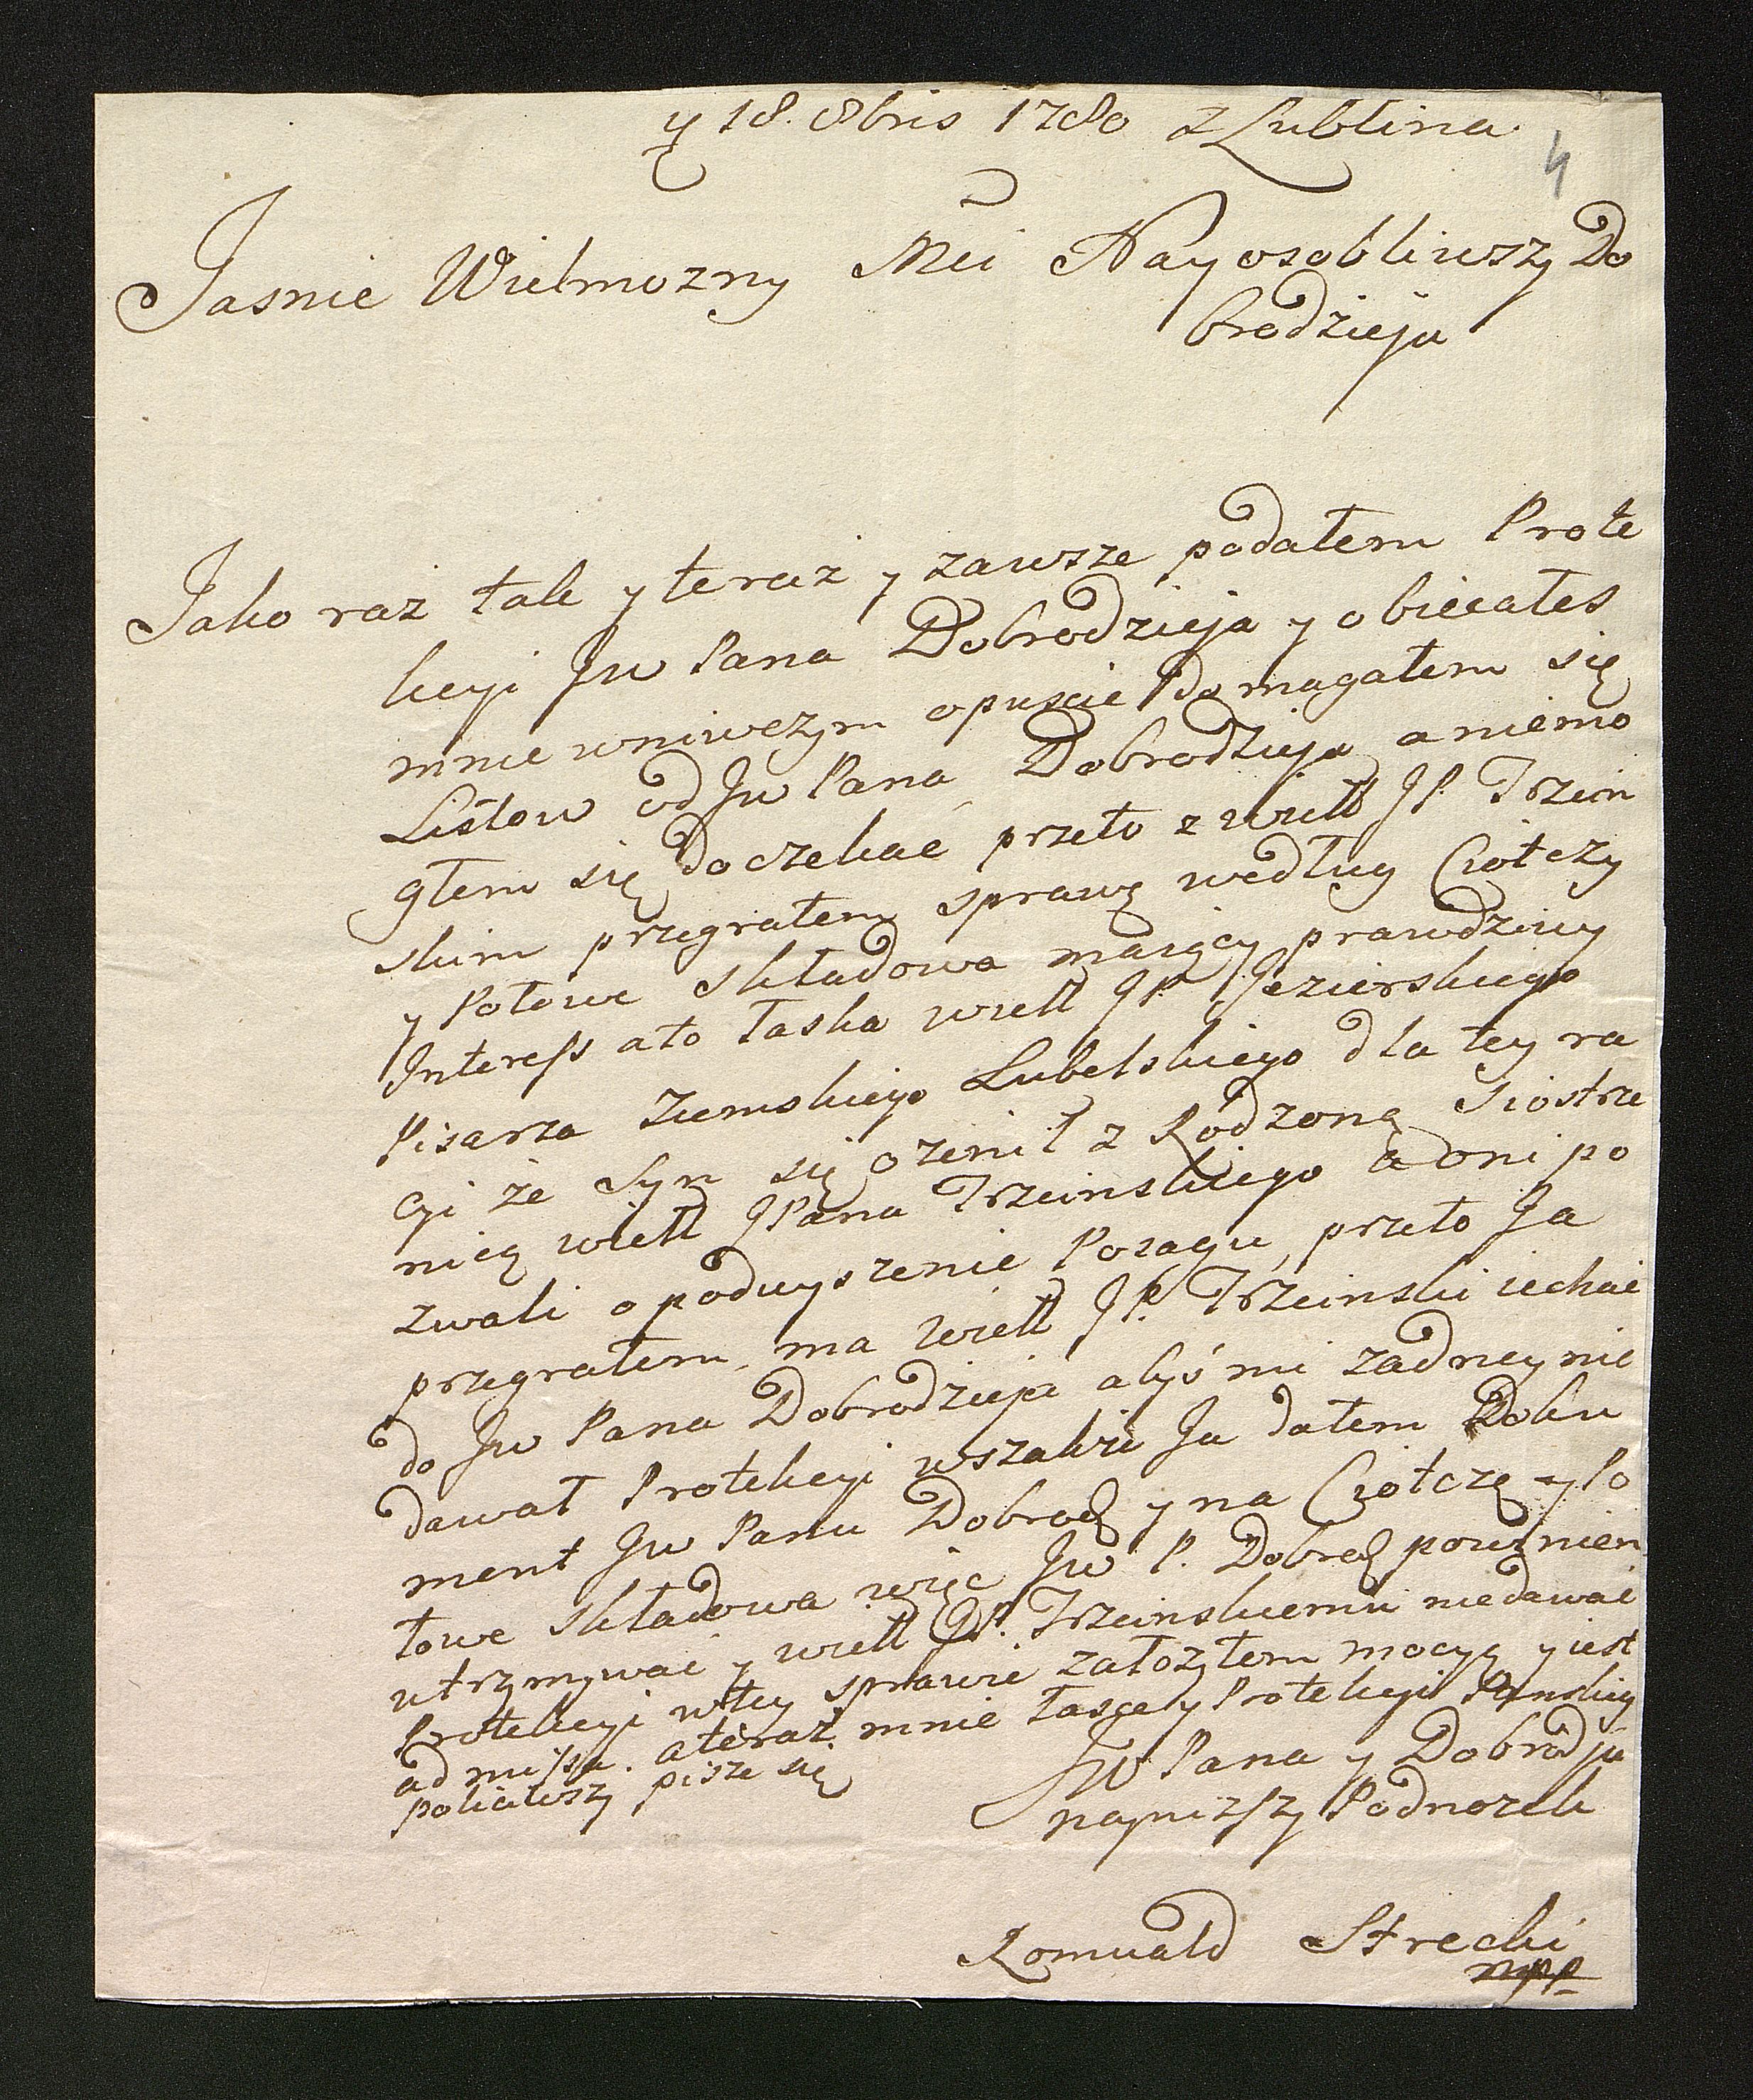 ȳ 18. 8bris 1780 z Lublina
4
Jasnie Wielmozny Mci Nayosobliwszy Do
brodzieju
Jako raz tak y teraz y zawsze podałem Prote
kcyi Jw Pana Dobrodzieja y obiecałes
mnie wniwczym opuscic domagałem się
Listow od Jw Pana Dobrodzieja a niemo
głem się doczekac przeto z wiell JP. Trzcin
skim przegrałem sprawę według Ciotczy
y Połowe Składowa maiący prawdziwy
Interess ato łaska wiell JP. Jezierskiego
Pisarza Ziemskiego Lubelskiego dla tey ra
cyi że Syn się ozenił z Rodzoną Siostrze
nicą wiell JPana Trzcinskiego a oni po
zwali o podwyszenie Posagu, przeto Ja
przegrałem. ma wiell JP. Trzcinski iechac
do Jw Pana Dobrodzieja abyś mi zadney nie
dawał Protekcyi wszakze Ja dałem Doku
ment Jw Panu Dobrod y na Ciotczę y Po
łowe Składowa więc Jw P. Dobrod powinien
utrzymywac y wiell JP. Trzcinskiemu niedawac
Protekcyi wtey sprawie założyłem mocyą y iest
admissa. ateraz mnie łasce y Protekcyi Panskiey
poleciwszy pisze się
Jw Pana y Dobrodja
nayniższy Podnozek
Romuald Strecki
mpp